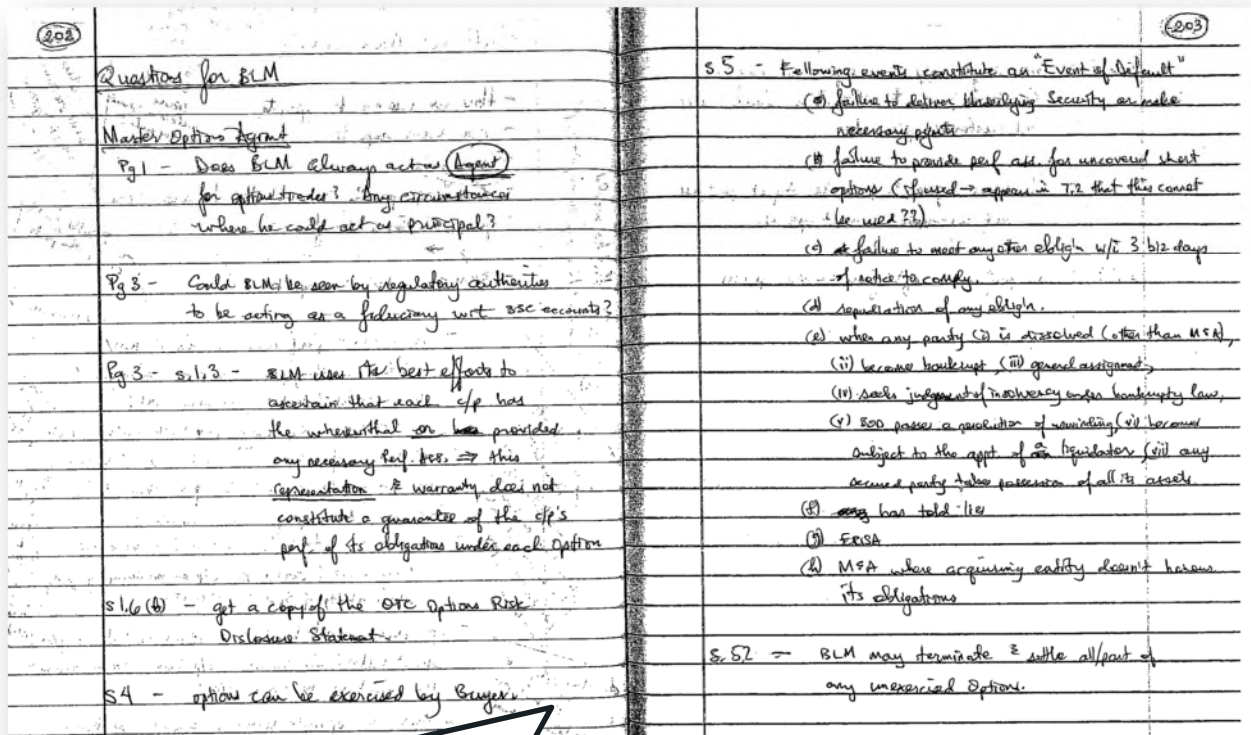 202
Questions for BLM
Master Options Agrmt
Pg 1 - Does BLM always act as "Agent"
for option trades? Any circumstances
where he could act as principal?
Pg 3 - Could BLM be seen by regulatory authorities
to be acting as a fiduciary wrt SSC accounts?
Pg 3 - s.1.3 - BLM uses its best efforts to
ascertain that each c/p has
the wherewithal or has provided
any necessary Perf. Ass. ⇒ this
representation & warranty does not
constitute a guarantee of the c/p's
perf. of its obligations under each option
s 1.6 (b) - get a copy of the OTC Options Risk
Disclosure Statement.
S4 - options can be exercised by Buyer.
203
s.5 - Following events constitute an "Event of Default"
(a) failure to deliver Underlying Security or make
necessary
(b) failure to provide perf ass. for uncovered short
options (if used → appears in 7.2 that this cannot
be used??)
(c) failure to meet any other oblig'n w/i 3 biz days
of notice to comply.
(d) repudiation of any oblig'n.
(e) when any party (i) is dissolved (other than M&A),
(ii) become bankrupt, (iii) general assignment,
(iv) seeks judgement of insolvency under bankruptcy law,
(v) BOD passes a resolution of unwinding, (vi) becomes
subject to the appt. of a liquidator, (vii) any
secured party takes possession of all its assets
(f) has told lies
(g) ERISA
(h) M&A where acquiring entity doesn't honour
its obligations
s.5.2 - BLM may terminate & settle all/part of
any unexercised Options.